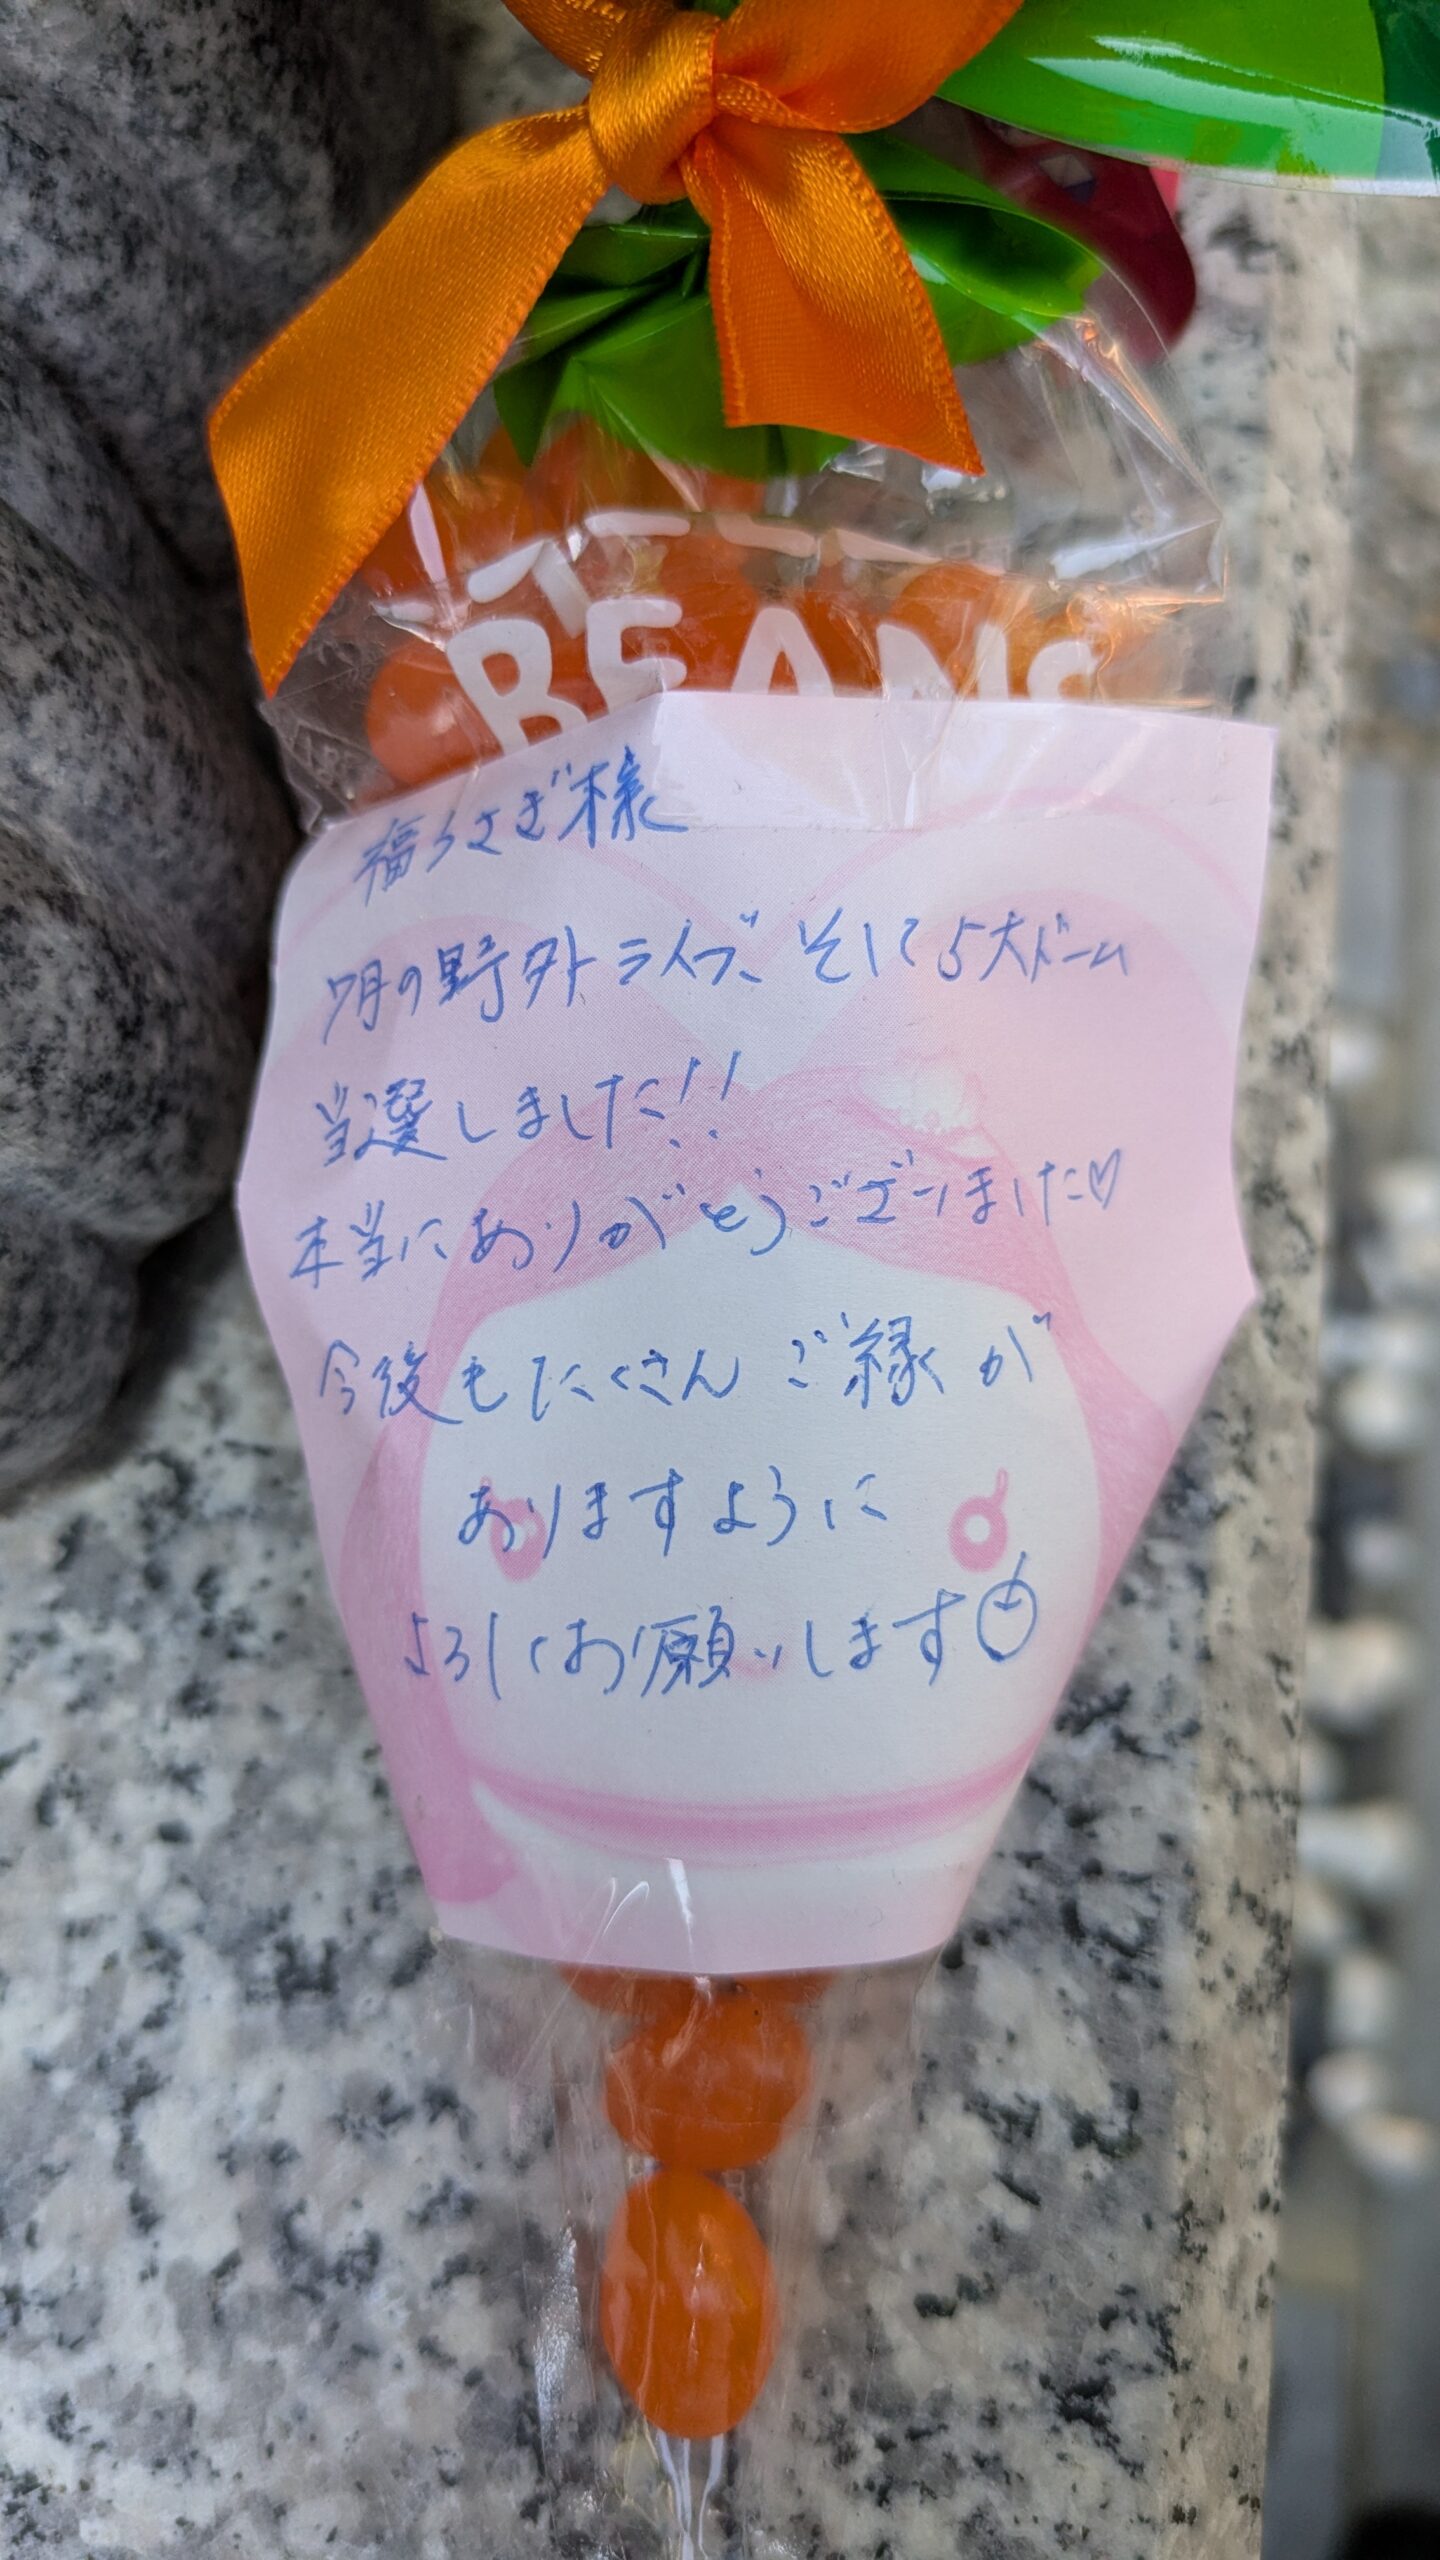 BEANS
福うさぎ様
7月の野外ライブ、そして5大ドーム
当選しました!!
本当にありがとうございました♡
今後もたくさんご縁が
ありますように
よろしくお願いします